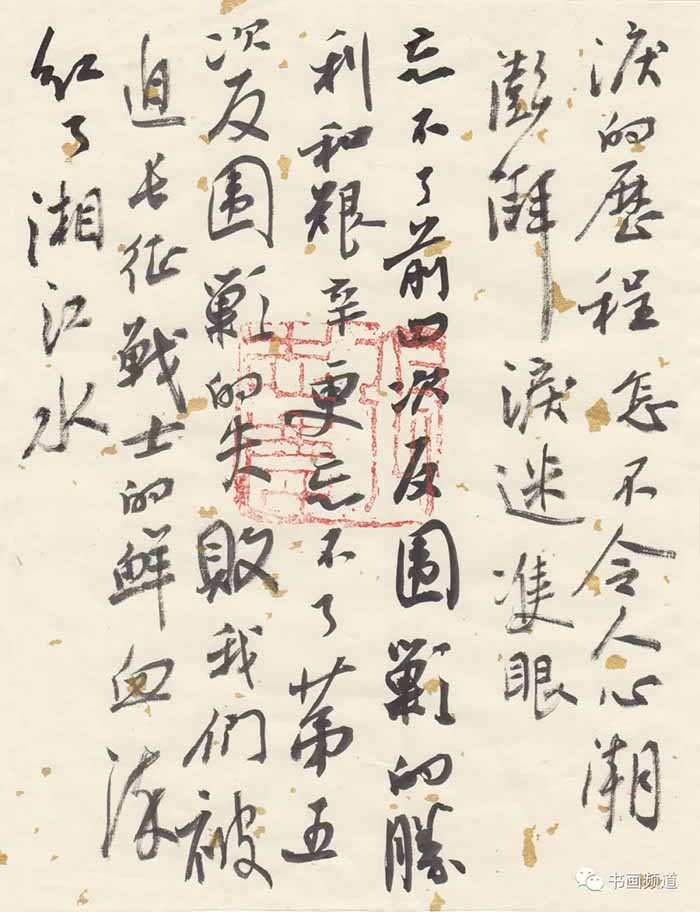 淚的歷程怎不令人心潮
澎湃淚迷雙眼
忘不了前四次反围剿的勝
利和艰辛更忘不了第五
次反围剿的失敗我们被
迫长征戰士的鲜血染
红了湘江水
书画频道